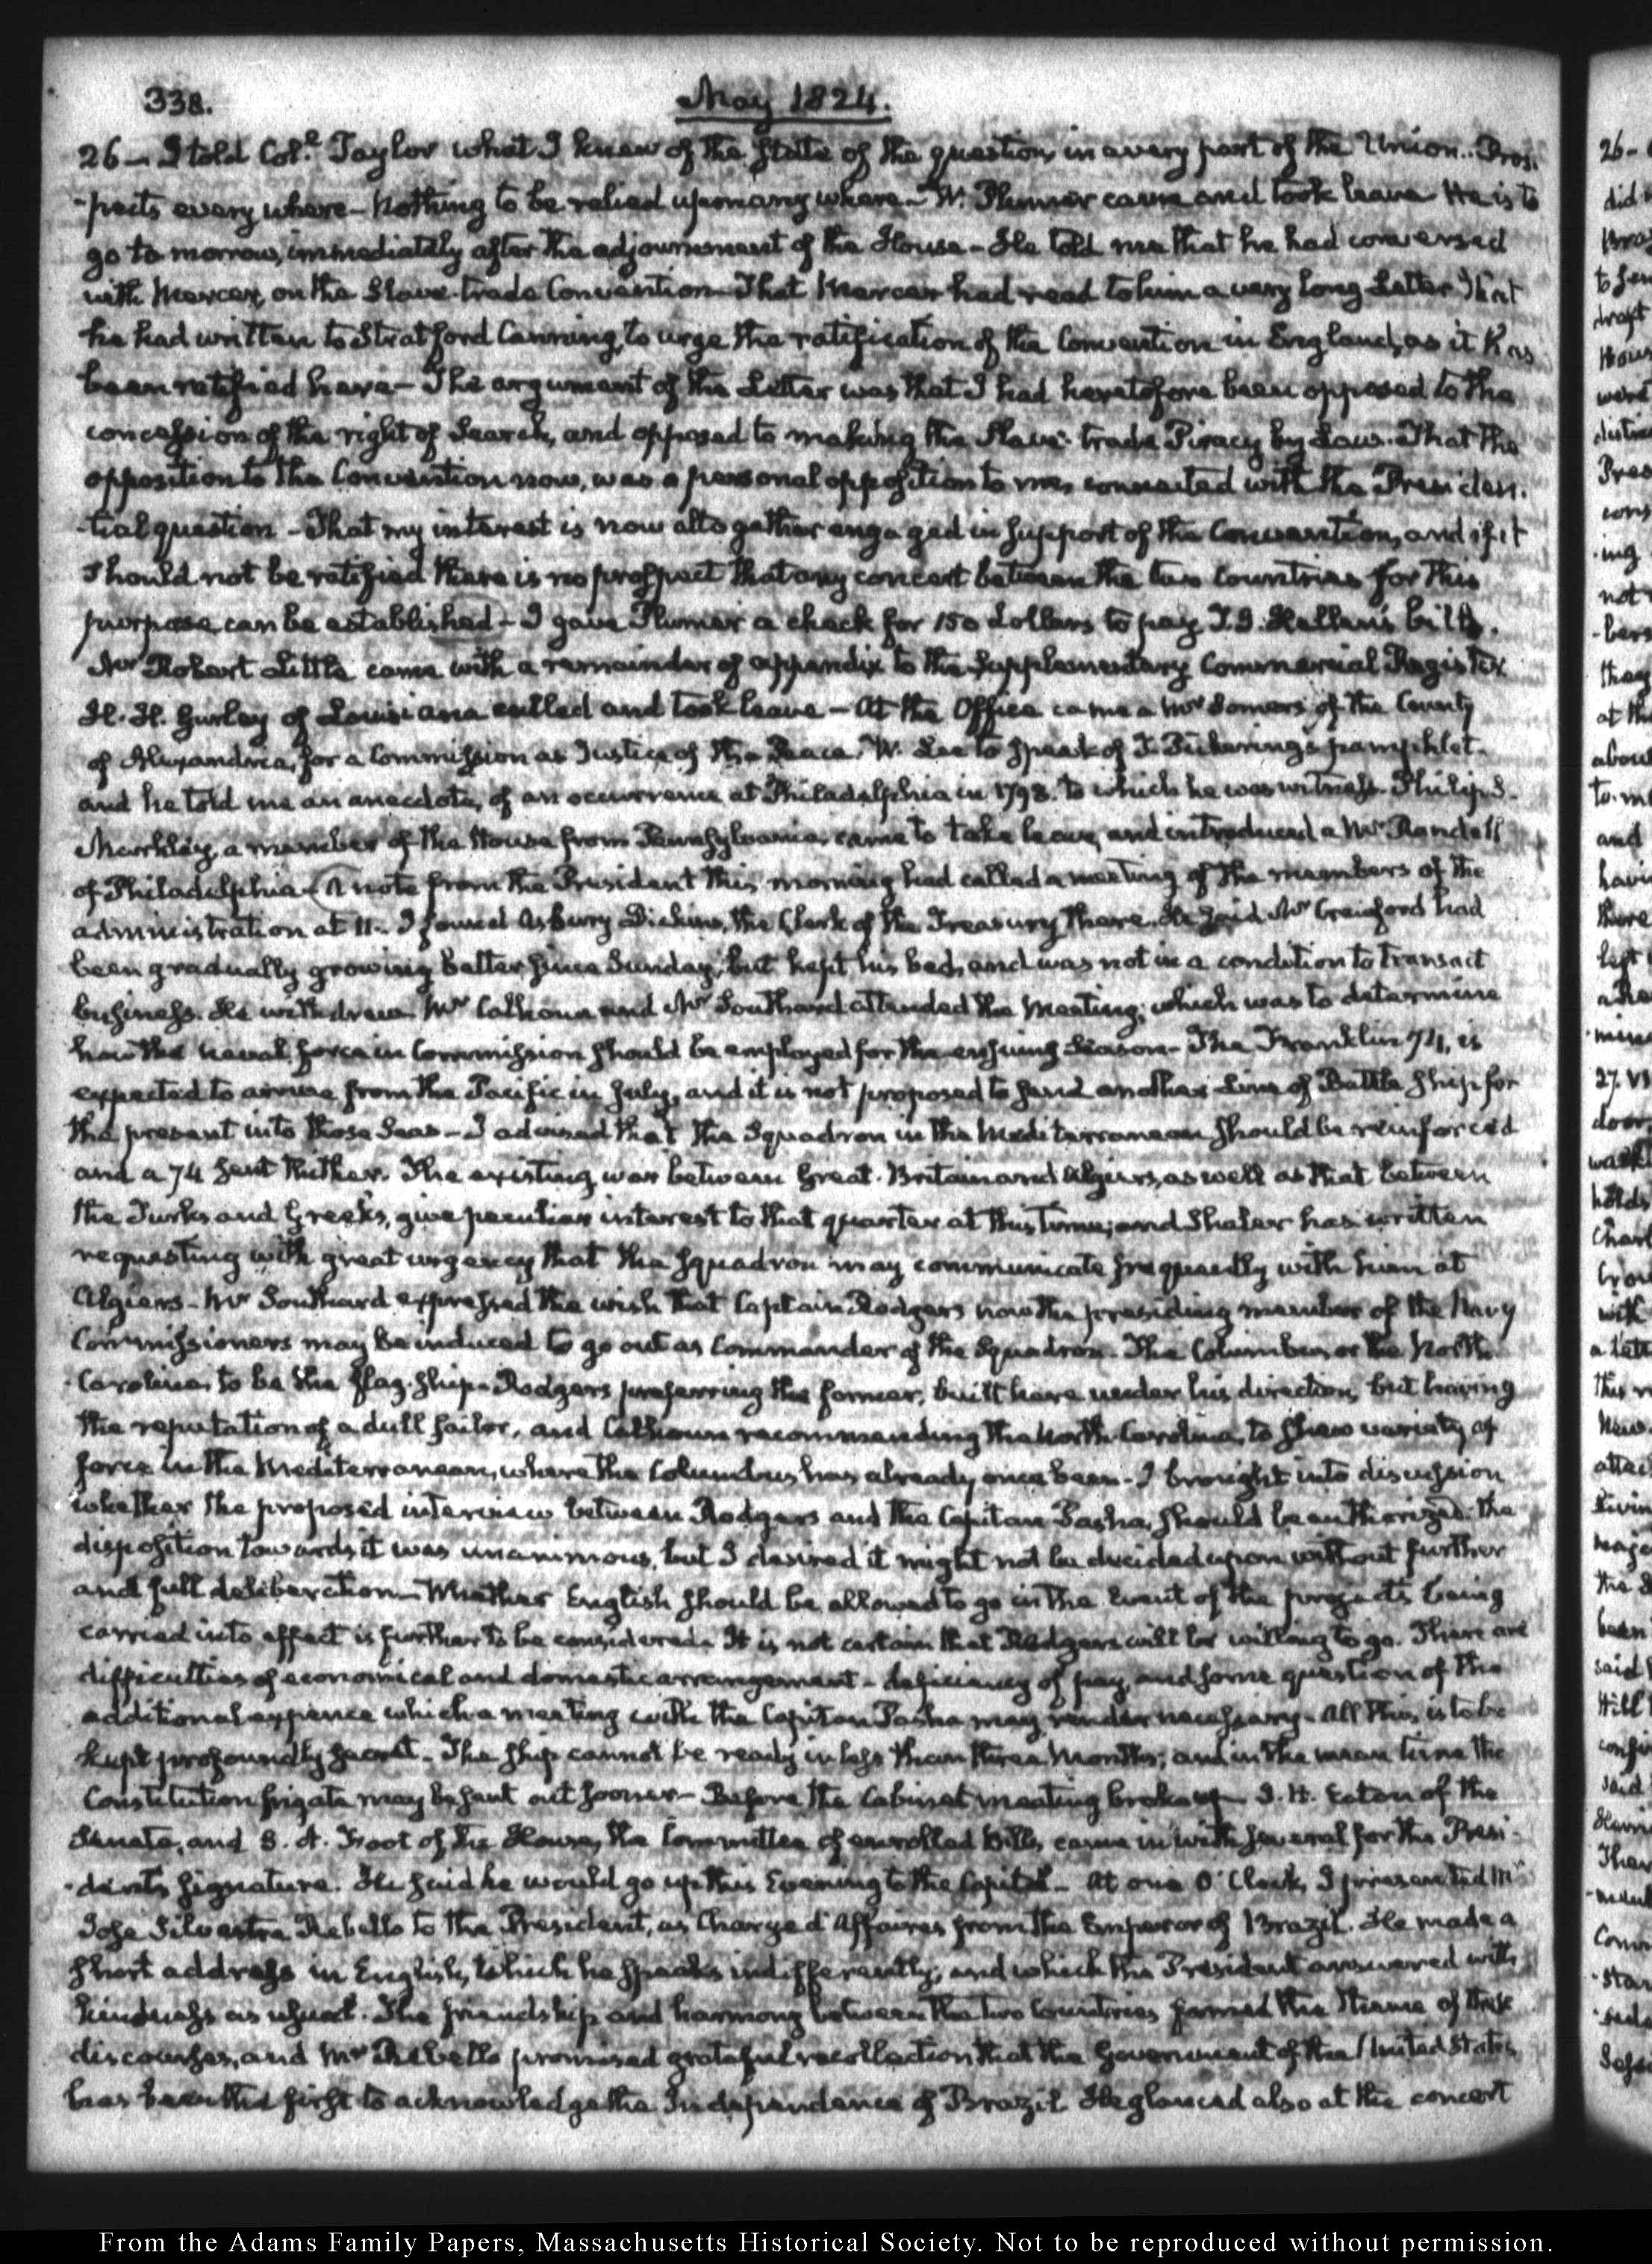 338.
May 1824.
26— I told Col.l Taylor what I knew of the State of the question, in every part of the Union.. Pros-
-pects every where— Nothing to be relied upon any where— W. Plumer came and took leave He is to
go to-morrow, immediately after the adjournment of the House— He told me that he had conversed
with Mercer, on the Slave-trade Convention— That Mercer had read to him a very long Letter that
he had written to Stratford Canning, to urge the ratification of the Convention in England, as it has
been ratified here— The argument of the Letter was that I had heretofore been opposed to the
concession of the right of Search, and opposed to making the Slave-trade Piracy by Law. That the
opposition to the Convention now, was a personal opposition to me, connected with the Presiden-
-tial question— That my interest is now altogether engaged in support of the Convention, and if it
should not be ratified there is no prospect that any concert between the two Countries for this
purpose can be established— I gave Plumer a check for 150 dollars to pay bills.
Mr Robert Little came with a remainder of appendix to the Supplementary Commercial Register
H. H. Gurley of Louisiana called and took leave— At the Office came a Mr Somers of the County
of Alexandria, for a Commission as Justice of the Peace. W. Lee to speak of T. Pickering's pamphlet.
and he told me an anecdote, of an occurrence at Philadelphia in 1798. to which he was witness. Philip S.
Markley, a member of the House from Pennsylvania, came to take leave, and introduced a Mr Randall
of Philadelphia— A note from the President this morning had called a meeting of the members of the
administration at 11.. I found Asbury Dickins, the Clerk of the Treasury there. He said Mr Crawford had
been gradually growing better since Sunday, but kept his bed, and was not in a condition to transact
business. He withdrew. Mr Calhoun and Mr Southard attended the Meeting; which was to determine
how the naval force in Commission should be employed for the ensuing Season— The Franklin 74, is
expected to arrive from the Pacific in July, and it is not proposed to send another Line of Battle Ship for
the present into those Seas— I advised that the Squadron in the Mediterranean should be reinforced
and a 74 sent thither. The existing war between Great-Britain and Algiers, as well as that between
the Turks and Greeks, give peculiar interest to that quarter at this time; and Shaler has written
requesting with great urgency that the Squadron may communicate frequently with him at
Algiers— Mr Southard expressed the wish that Captain Rodgers now the presiding member of the Navy
Commissioners may be induced to go out as Commander of the Squadron. The Columbus, or the North-
-Carolina, to be the flag-ship— Rodgers preferring the former, built here under his direction, but having
the reputation of a dull sailor, and Calhoun recommending the North-Carolina, to shew variety of
force in the Mediterranean, where the Columbus has already once been— I brought into discussion
whether the proposed interview between Rodgers and the Capitan Pasha, should be authorized. the
disposition towards it was unanimous, but I desired it might not be decided upon without further
and full deliberation— Whether English should be allowed to go in the Event of the projects being
carried into effect is further to be considered. It is not certain that Rodgers will be willing to go. There are
difficulties of economical and domestic arrangement— deficiency of pay, and some question of the
additional expence which a meeting with the Capitan Pasha may render necessary— All this is to be
kept profoundly secret— The ship cannot be ready in less than three Months; and in the mean time the
Constitution frigate may be sent out sooner— Before the Cabinet meeting broke up J. H. Eaton of the
Senate, and S. A. Foot of the House, the Committee of enrolled Bills, came in with several for the Presi-
-dent's signature. He said he would go up this Evening to the Capitol— At one O'Clock, I presented Mr
Jose Silvestre Rebello to the President, as Chargé d'Affaires from the Emperor of Brazil. He made a
short address in English, which he speaks indifferently, and which the President answered with
kindness as usual. The friendship and harmony between the two Countries formed the theme of the
discourses, and Mr Rebello promised grateful recollection that the Government of the United States
has been the first to acknowledge the Independence of Brazil He glanced also at the concert
From the Adams Family Papers, Massachusetts Historical Society. Not to be reproduced without permission.